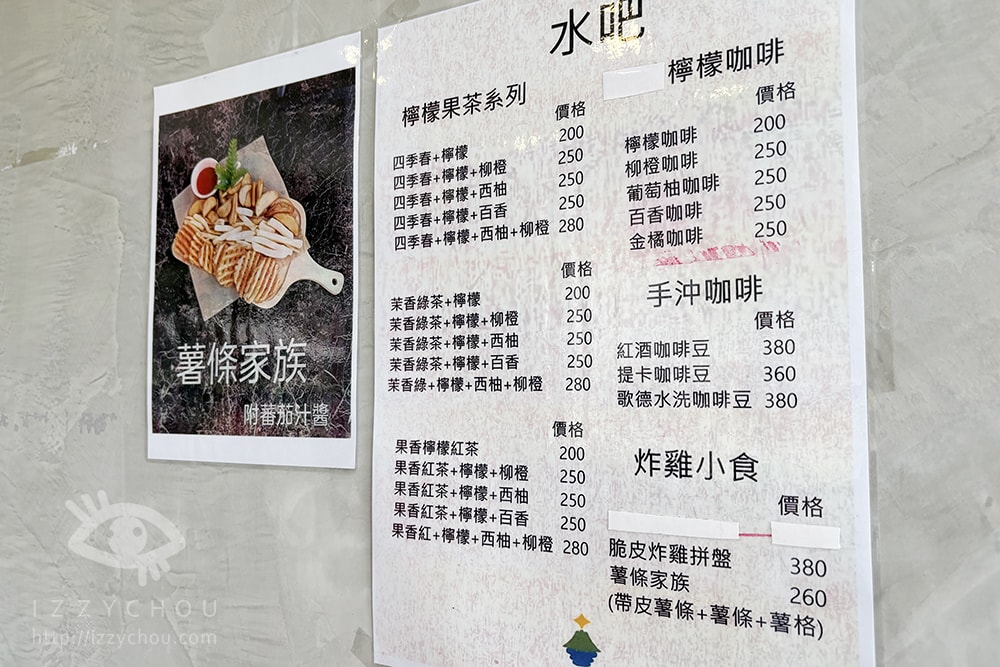 薯條家族
附蕃茄汁醬
水吧
檸檬果茶系列
價格
四季春+檸檬 200
四季春+檸檬+柳橙 250
四季春+檸檬+西柚 250
四季春+檸檬+百香 250
四季春+檸檬+西柚+柳橙 280
價格
茉香綠茶+檸檬 200
茉香綠茶+檸檬+柳橙 250
茉香綠茶+檸檬+西柚 250
茉香綠茶+檸檬+百香 250
茉香綠+檸檬+西柚+柳橙 280
價格
果香檸檬紅茶 200
果香紅茶+檸檬+柳橙 250
果香紅茶+檸檬+西柚 250
果香紅茶+檸檬+百香 250
果香紅+檸檬+西柚+柳橙 280
檸檬咖啡
價格
檸檬咖啡 200
柳橙咖啡 250
葡萄柚咖啡 250
百香咖啡 250
金橘咖啡 250
手沖咖啡
價格
紅酒咖啡豆 380
提卡咖啡豆 360
歌德水洗咖啡豆 380
炸雞小食
價格
脆皮炸雞拼盤 380
薯條家族 260
(帶皮薯條+薯條+薯格)
IZZYCHOU
http://izzychou.com